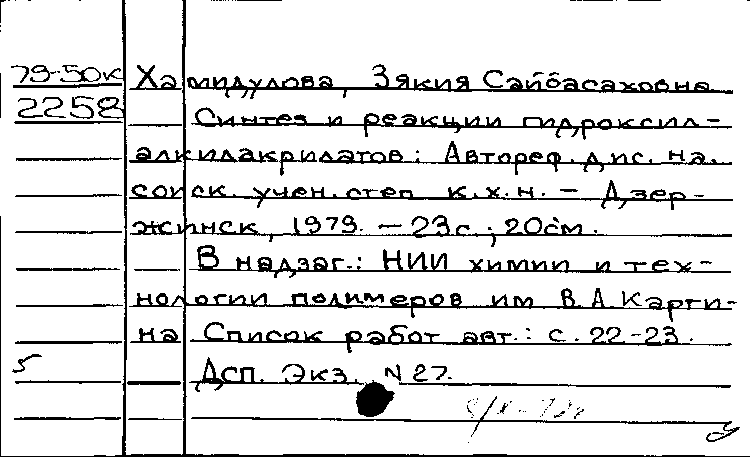 79-50к Хамидулова, Зякия Сайбасаховна
2258 Синтез и реакции гидроксил-
алкилакрилатов: Автореф. дис. на.
соиск. учен. степ к.х.н. – Дзер-
жинск, 1979. – 23с.; 20см.
В надзаг.: НИИ химии и тех-
нологии полимеров им В.А. Карги-
на Список работ авт.: с. 22-23.
5 Дсп. Экз. N 27.